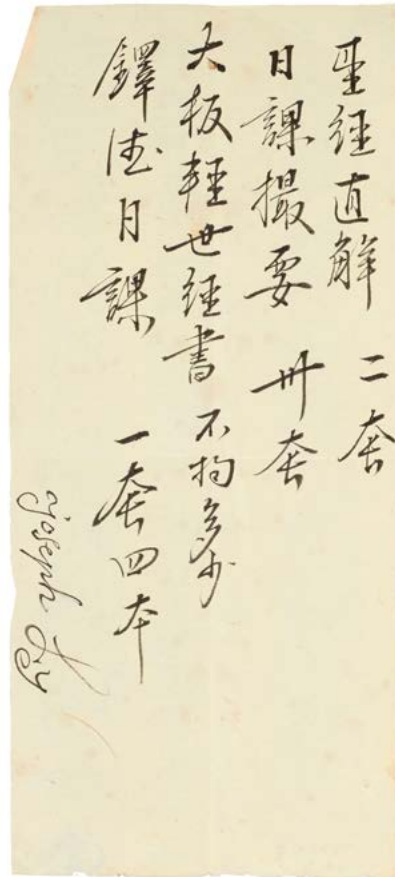 聖經直解 二套
日課撮要 卅套
大板輕世經書 不拘多少
鐸德日課 一套四本
joseph